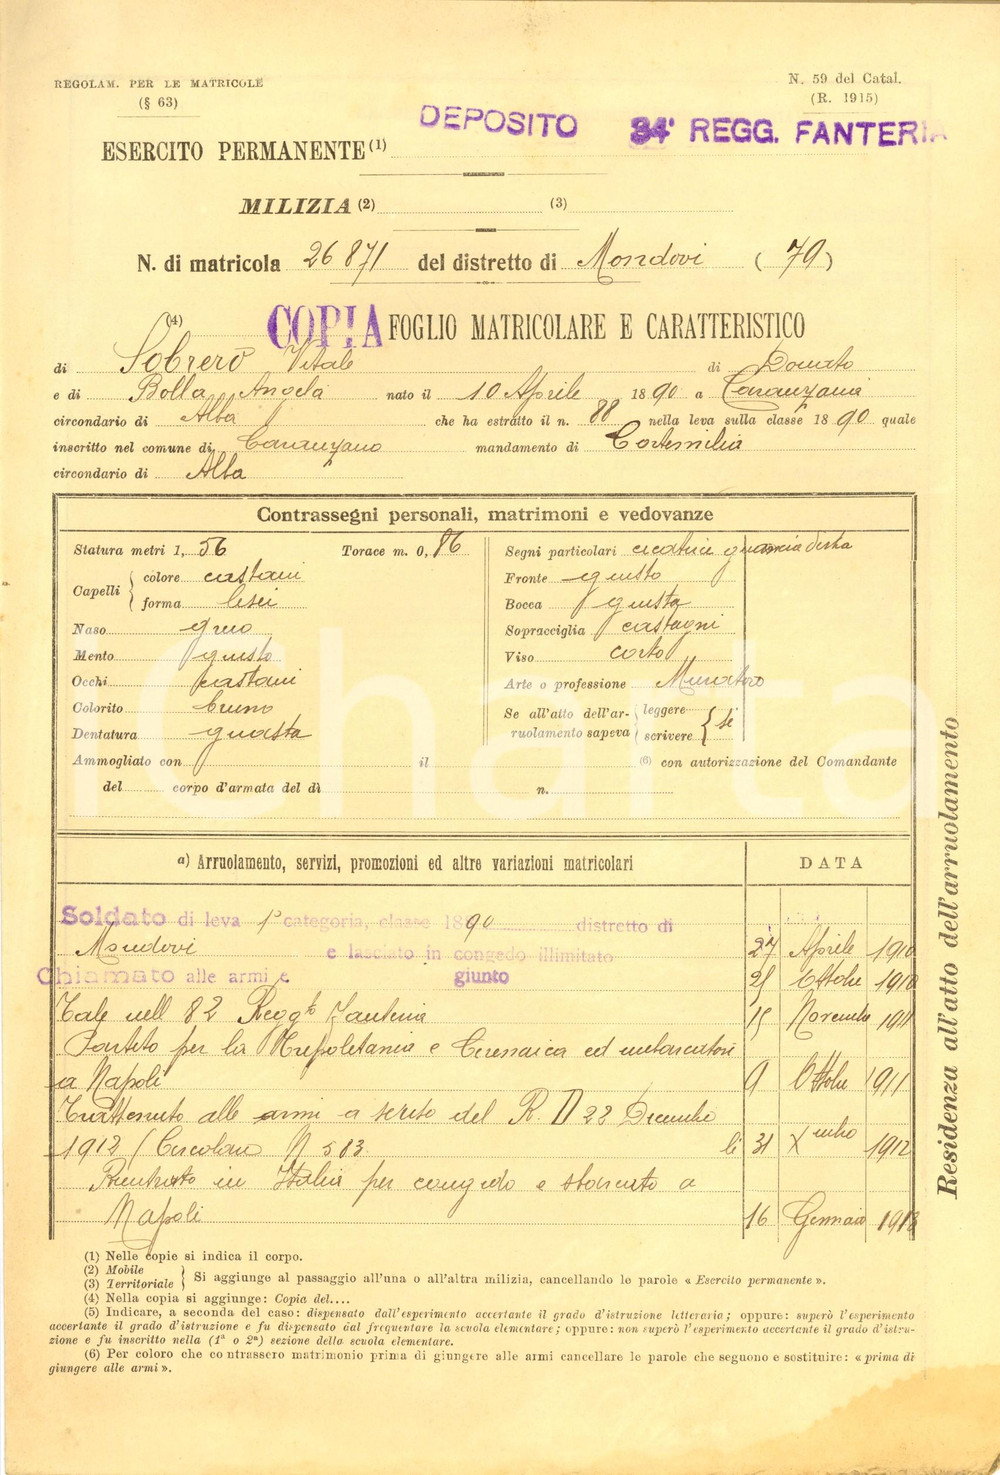 REGOLAM. PER LE MATRICOLE
(§ 63)
N. 59 del Catal.
(R. 1915)
DEPOSITO 34° REGG. FANTERIA
ESERCITO PERMANENTE (1)
MILIZIA (2) (3)
N. di matricola 26871 del distretto di Mondovi (79)
(4) COPIA FOGLIO MATRICOLARE E CARATTERISTICO
di Sobrero Vitale di Donato
e di Bolla Angela nato il 10 Aprile 1890 a
circondario di Alba che ha estratto il n. 88 nella leva sulla classe 1890 quale
inscritto nel comune di mandamento di Cortemilia
circondario di Alba
Contrassegni personali, matrimoni e vedovanze
Statura metri 1, 56 Torace m. 0, 86
Capelli { colore castani
forma lisci
Naso
Mento giusto
Occhi castani
Colorito bruno
Dentatura guasta
Segni particolari cicatrice guancia destra
Fronte giusto
Bocca giusta
Sopracciglia castagni
Viso corto
Arte o professione Muratore
Se all'atto dell'arruolamento sapeva { leggere
scrivere } si
Ammogliato con il (6) con autorizzazione del Comandante
del corpo d'armata del dì n.
a) Arruolamento, servizi, promozioni ed altre variazioni matricolari DATA
Soldato di leva 1ª categoria, classe 1890 distretto di
Mondovi e lasciato in congedo illimitato 27 Aprile 1910
Chiamato alle armi e giunto Ottobre 1910
Tale nell 82 Reggto Fanteria 15 Novembre 1911
Partito per la Tripolitania e Cirenaica ed imbarcatosi
a Napoli 9 Ottobre 1911
Trattenuto alle armi a senso del R. D 22 Dicembre
1912 (Circolare N 583 li 31 Xmbre 1912
Rientrato in Italia per congedo e sbarcato a
Napoli 16 Gennaio 1913
Residenza all'atto dell'arruolamento
(1) Nelle copie si indica il corpo.
(2) Mobile
(3) Territoriale } Si aggiunge al passaggio all'una o all'altra milizia, cancellando le parole « Esercito permanente ».
(4) Nella copia si aggiunge: Copia del....
(5) Indicare, a seconda del caso: dispensato dall'esperimento accertante il grado d'istruzione letteraria; oppure: superò l'esperimento
accertante il grado d'istruzione e fu dispensato dal frequentare la scuola elementare; oppure: non superò l'esperimento accertante il grado d'istru-
zione e fu inscritto nella (1ª o 2ª) sezione della scuola elementare.
(6) Per coloro che contrassero matrimonio prima di giungere alle armi cancellare le parole che seguono e sostituire: « prima di
giungere alle armi ».